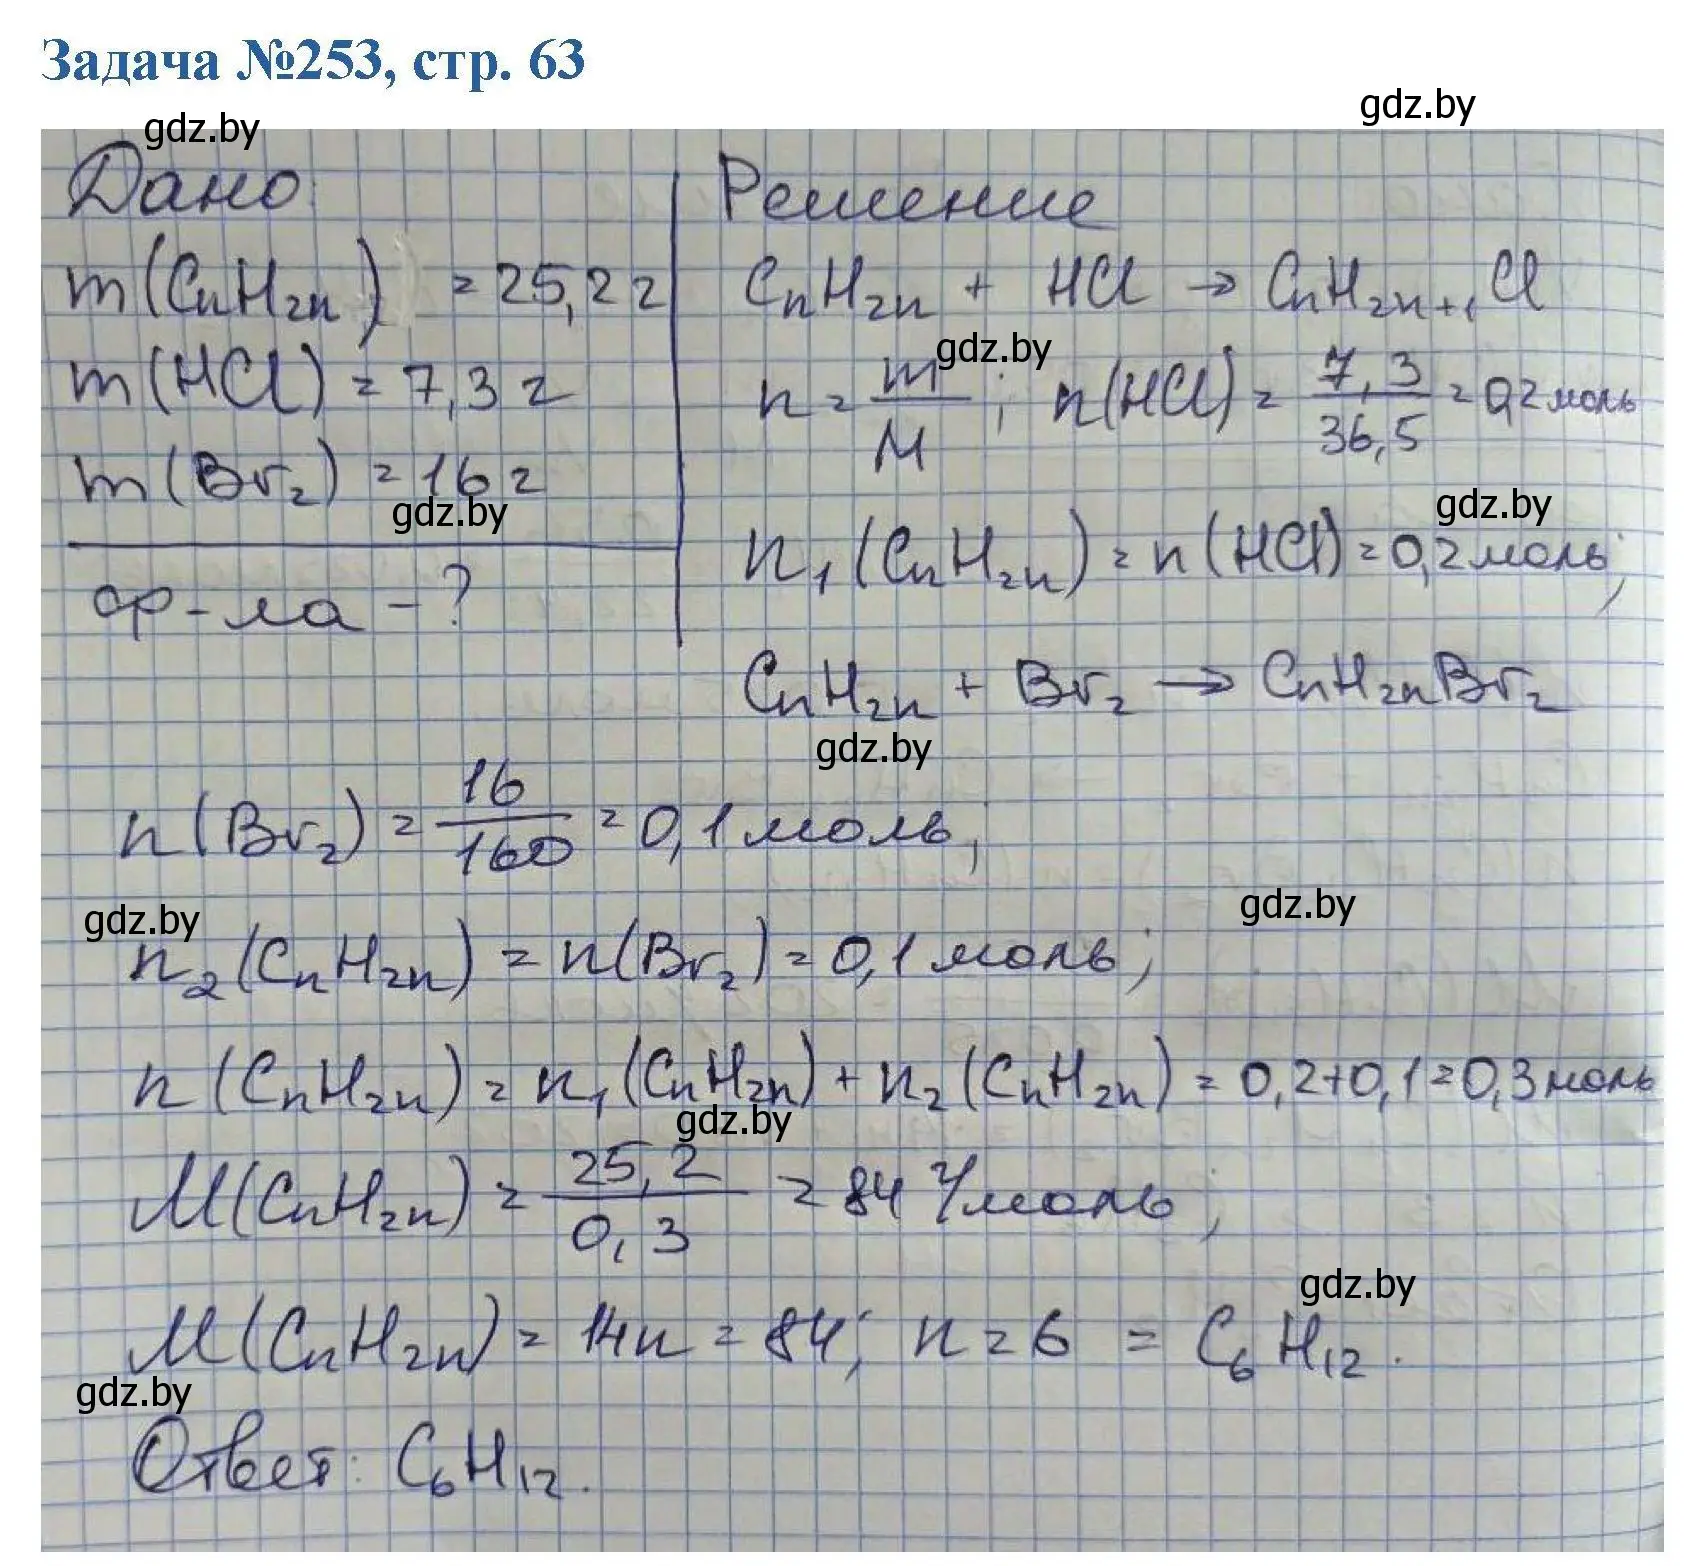 Задача №253, стр. 63
gdz.by
gdz.by
Дано:
m(CnH2n) = 25,2 г
m(HCl) = 7,3 г
m(Br2) = 16 г
gdz.by
ф-ла - ?
Решение
CnH2n + HCl → CnH2n+1Cl
gdz.by
n = m/M; n(HCl) = 7,3/36,5 = 0,2 моль
gdz.by
n1(CnH2n) = n(HCl) = 0,2 моль;
CnH2n + Br2 → CnH2nBr2
gdz.by
n(Br2) = 16/160 = 0,1 моль;
gdz.by
gdz.by
n2(CnH2n) = n(Br2) = 0,1 моль;
n(CnH2n) = n1(CnH2n) + n2(CnH2n) = 0,2+0,1=0,3 моль
gdz.by
M(CnH2n) = 25,2/0,3 = 84 г/моль;
gdz.by
M(CnH2n) = 14n = 84; n = 6 = C6H12.
gdz.by
Ответ: C6H12.